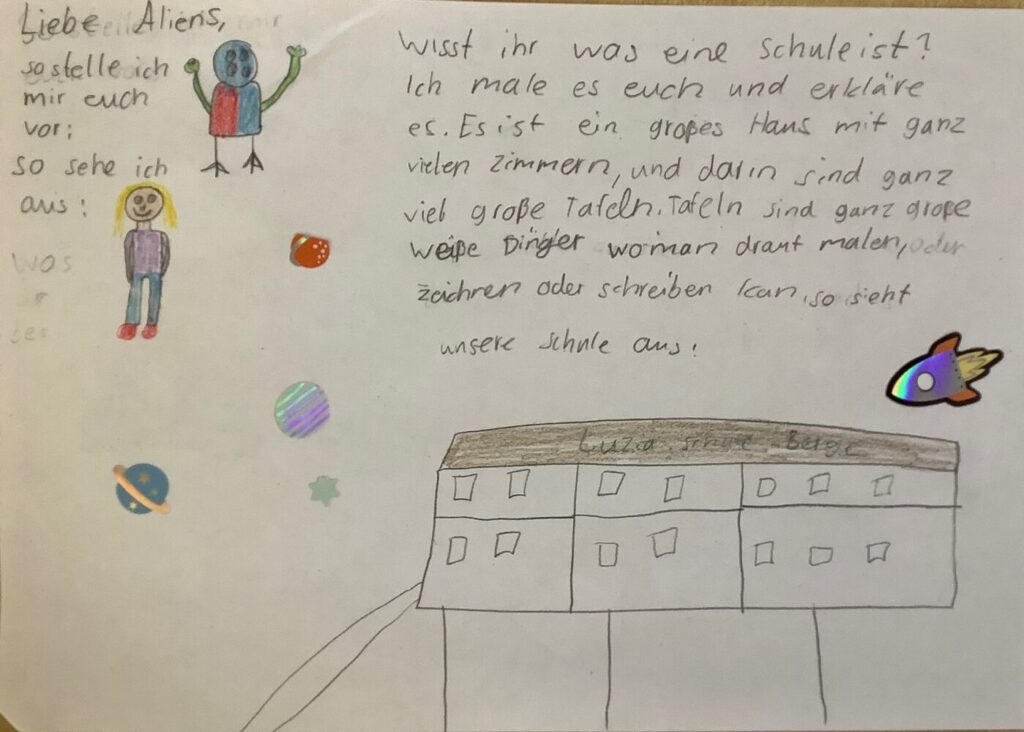 Liebe Aliens,
so stelle ich
mir euch
vor:
so sehe ich
aus:
was
Wisst ihr was eine Schule ist?
Ich male es euch und erkläre
es. Es ist ein großes Haus mit ganz
vielen Zimmern, und darin sind ganz
viel große Tafeln. Tafeln sind ganz große
weiße Dinger wo man drauf malen, oder
zeichnen oder schreiben kan, so sieht
unsere Schule aus:
Luzia schule Berge